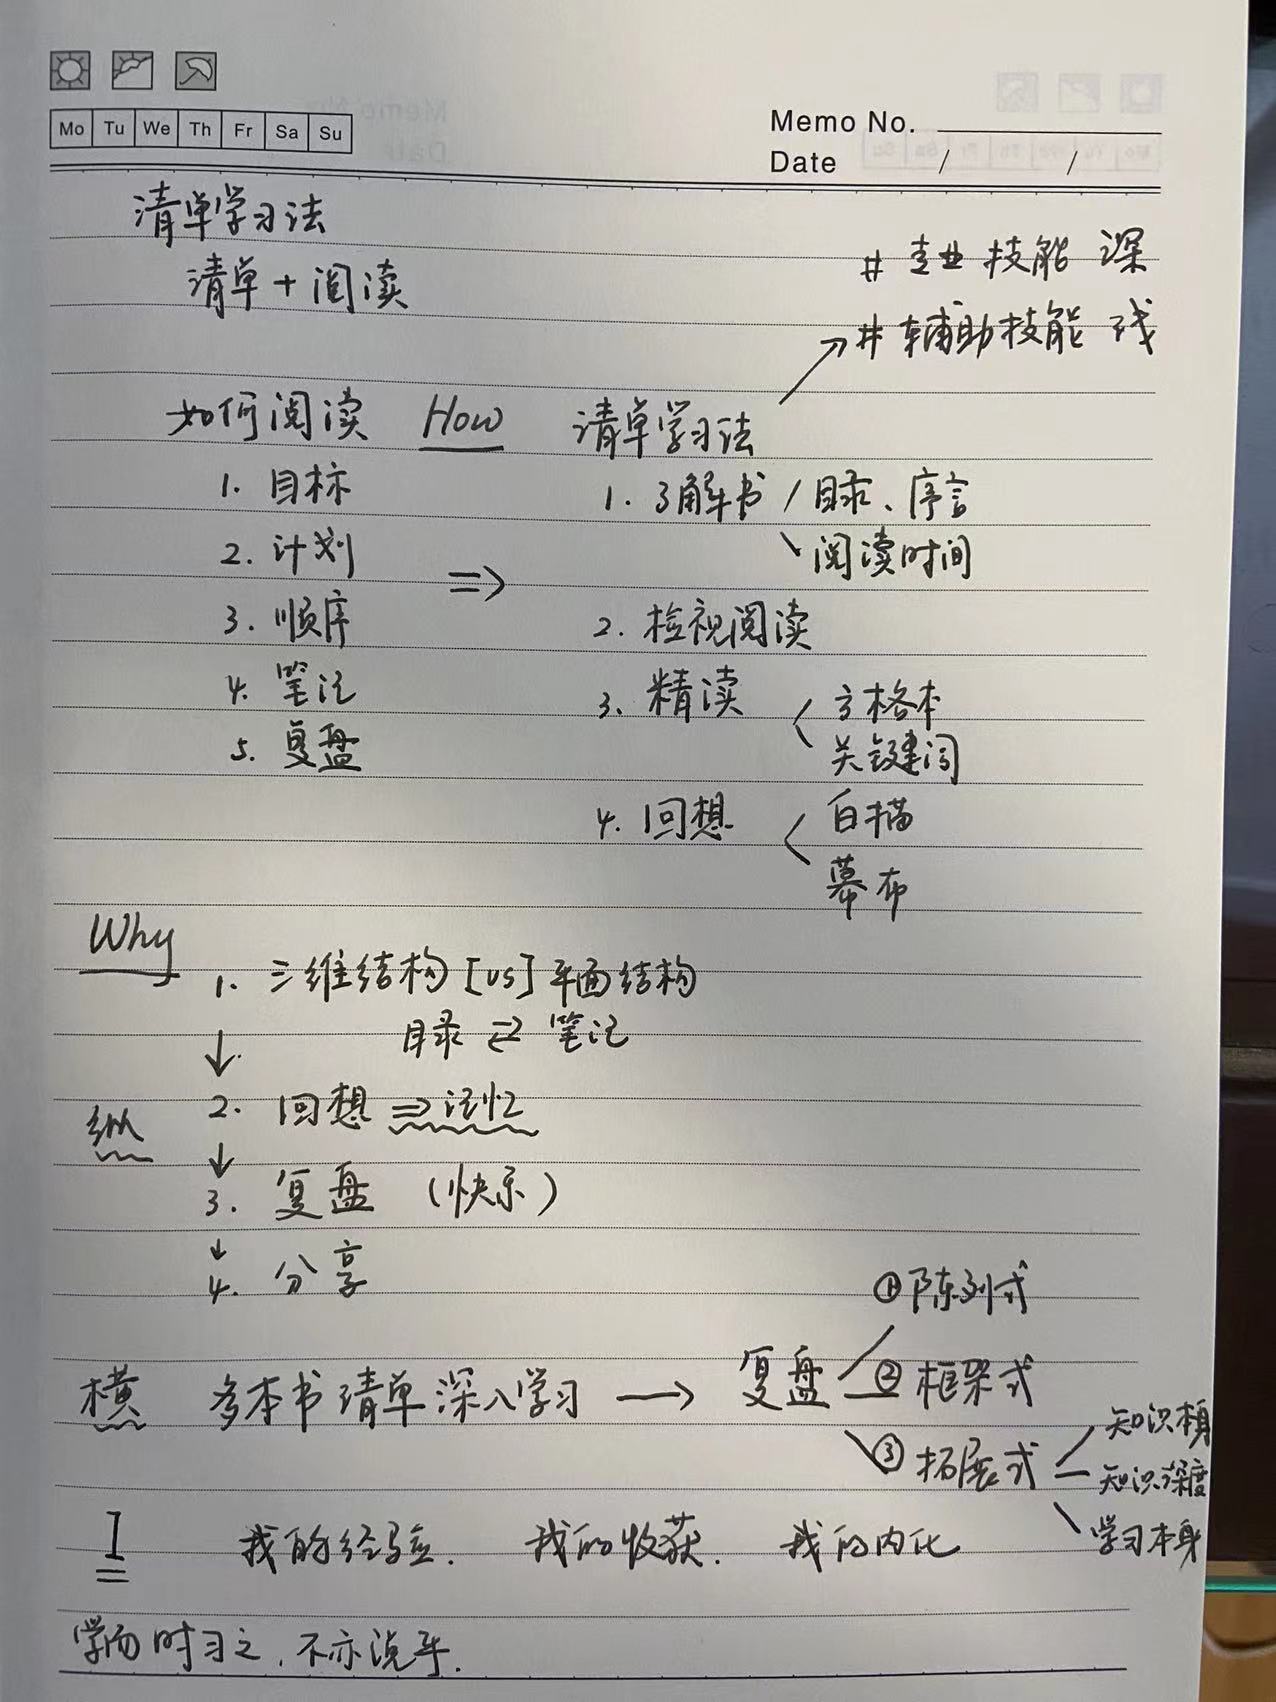 Mo Tu We Th Fr Sa Su
Memo No.
Date / /
清单学习法
清单+阅读
# 专业技能 深
# 辅助技能 浅
如何阅读 How 清单学习法
1. 目标
2. 计划
3. 顺序
4. 笔记
5. 复盘
⇒
1. 了解书 目录、序言
阅读时间
2. 检视阅读
3. 精读 方格本
关键词
4. 回想 白描
幕布
Why
1. 三维结构 [vs] 平面结构
目录 ⇄ 笔记
↓
纵 2. 回想 ⇒ 记忆
↓
3. 复盘 (快乐)
↓
4. 分享
横 多本书清单深入学习 → 复盘
① 陈列式
② 框架式
③ 拓展式
知识横
知识深度
学习本身
I 我的经验. 我的收获. 我的内化
学而时习之, 不亦说乎.